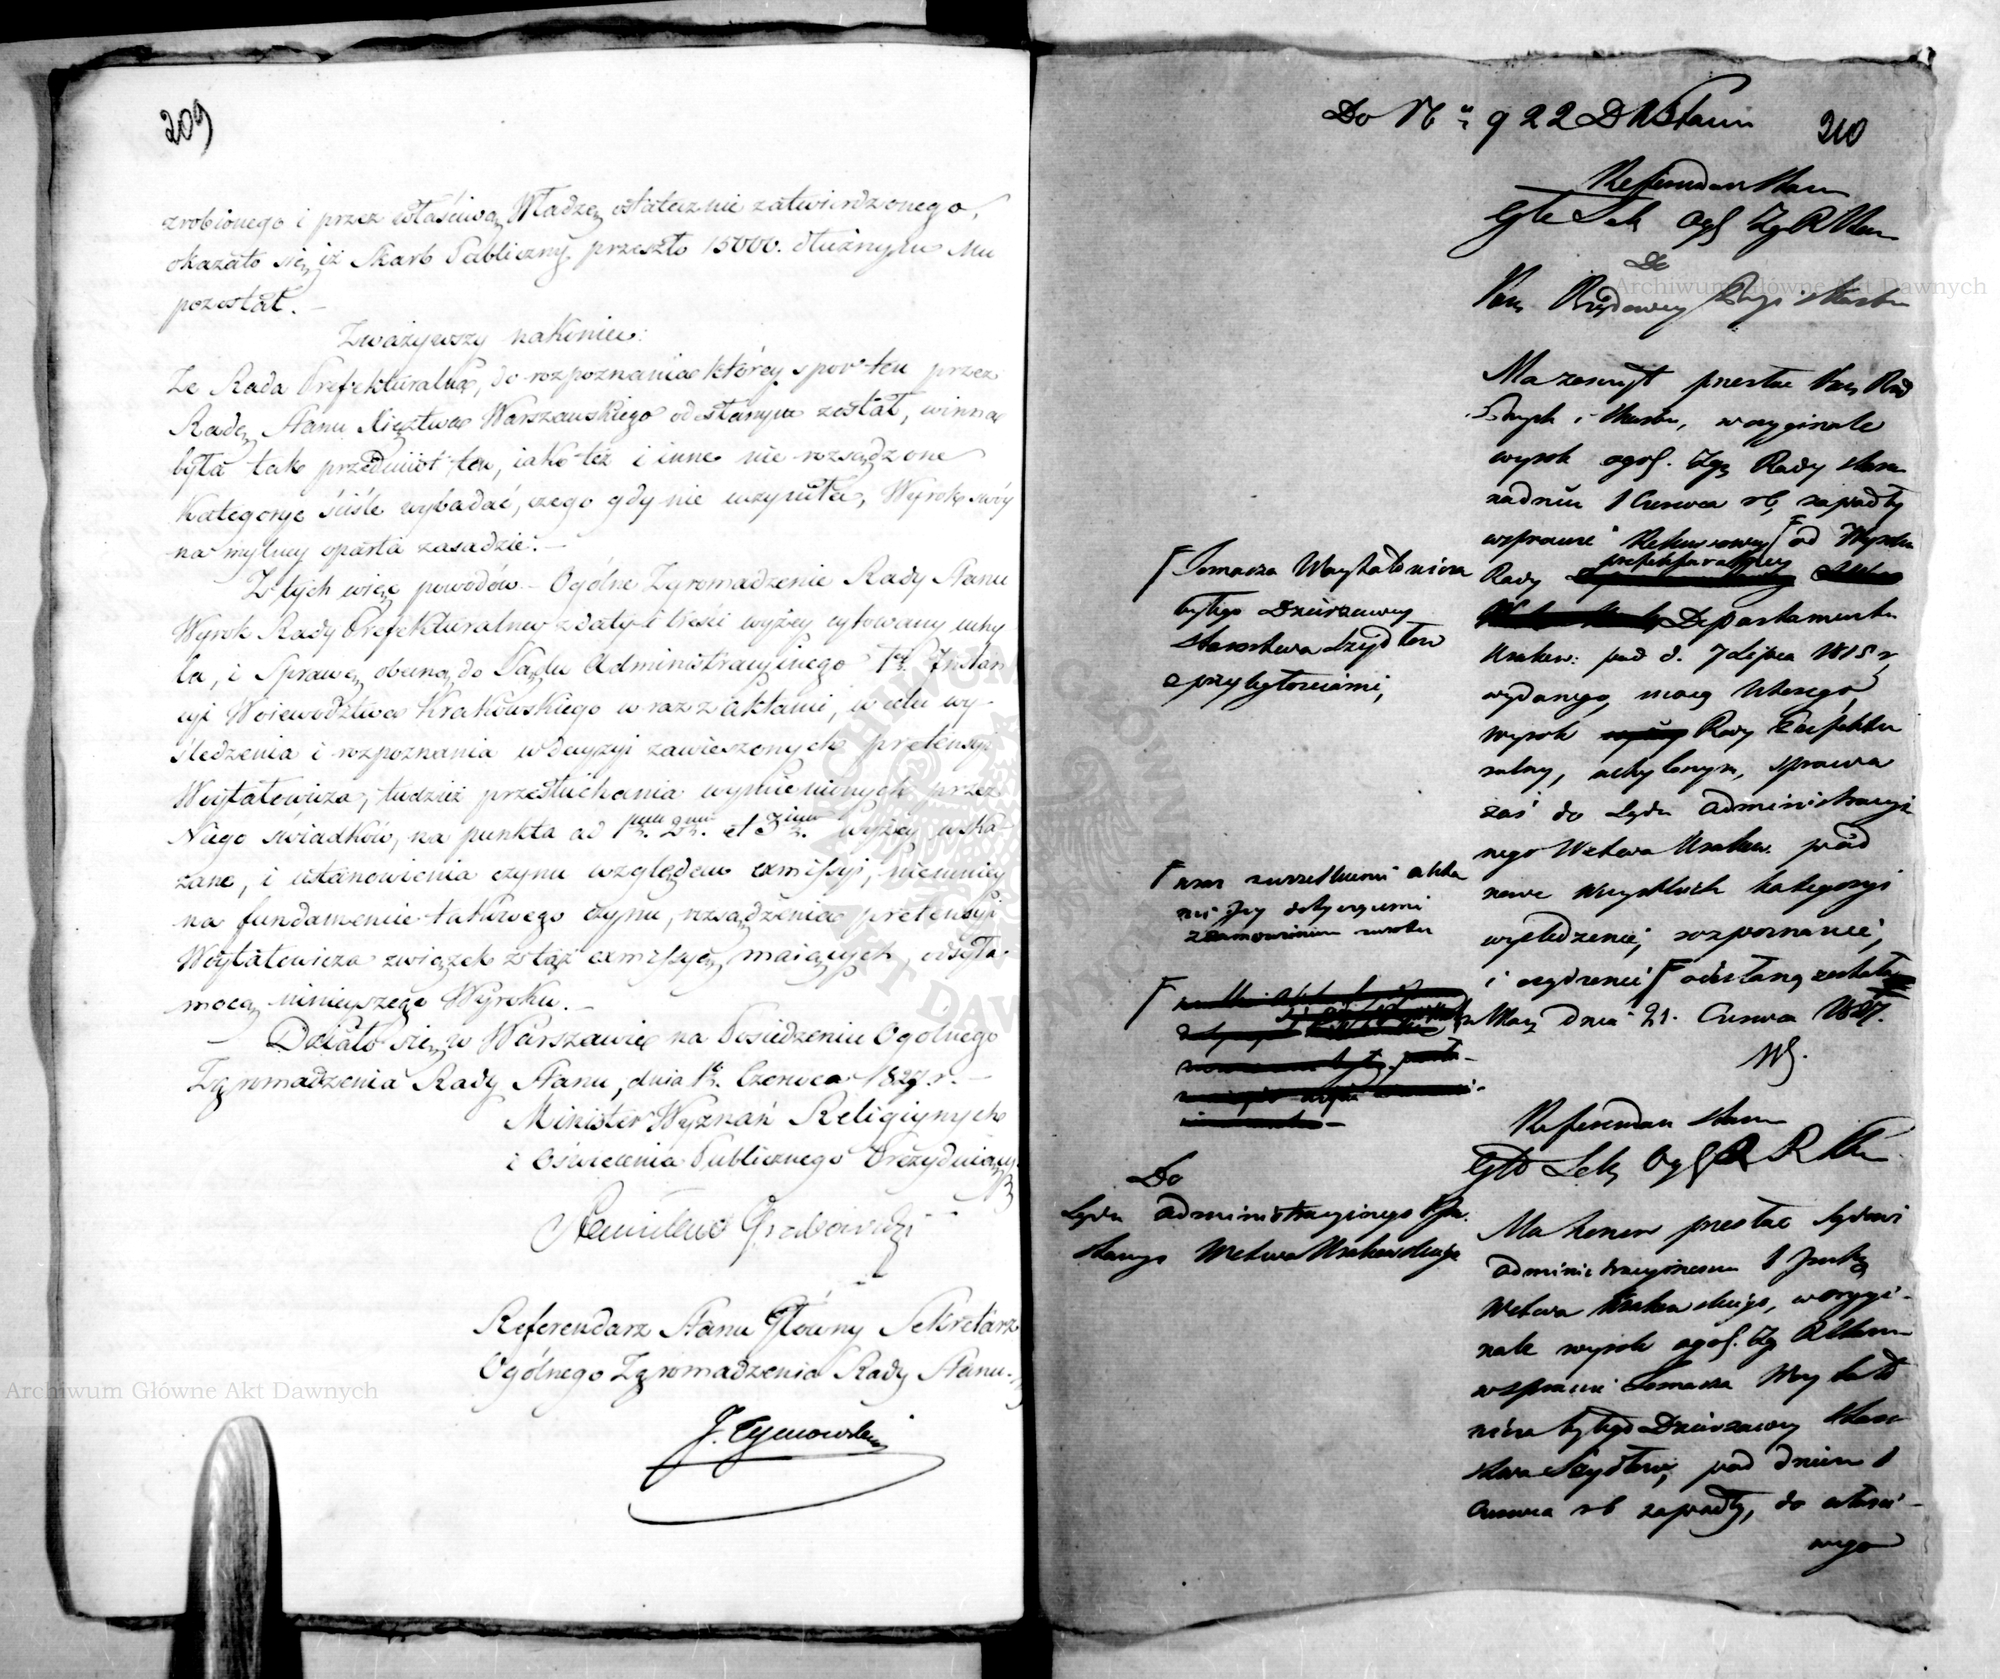 209
zrobionego i przez właściwą Władzę ostatecznie zatwierdzonego,
okazało się, iż Skarb Publiczny przeszło 15000. dłużnym Mu
pozostał. –
Zważywszy nakoniec:
Że Rada Prefekturalna, do rozpoznania którey spor ten przez
Radę Stanu Xięztwa Warszawskiego odesłanym został, winna
była tak przedmiot ten, iako też i inne nie rozsądzone
Kategorye ściśle wybadać, czego gdy nie uczyniła, Wyrok swóy
na mylney oparła zasadzie. –
Z tych więc powodów – Ogólne Zgromadzenie Rady Stanu
Wyrok Rady Prefekturalney z daty i treści wyżey cytowany uchy
la, i Sprawę obecną do Sądu Administracyinego 1ey Instan
cyi Woiewództwa Krakowskiego wraz z aktami, w celu wy-
śledzenia i rozpoznania w decyzyi zawieszonych pretensyi
Woytałowicza, tudzież przesłuchania wymienionych przez
Niego świadków, na punkta ad 1mum 2dum et 3tium wyżey wska-
zane, i ustanowienia czynu względem exmissyi, niemniey
na fundamencie takowego czynu, rozsądzenia pretensyi
Woytałowicza związek z tąż exmissyą maiących, odsyła
mocą ninieyszego Wyroku. –
Działo się w Warszawie na Posiedzeniu Ogólnego
Zgromadzenia Rady Stanu, dnia 1go Czerwca 1827 r. –
Minister Wyznań Religiynych
i Oświecenia Publicznego Prezyduiący
Stanisław Grabowski
Referendarz Stanu Główny Sekretarz
Ogólnego Zgromadzenia Rady Stanu.
J. Tymowski
Do Nru 922 D K Stanu
210
Referendarz Stanu
Gł Sek Ogł Zg R Stanu
Do
Kom Rządowey Przych i Skarbu
Ma zaszczyt przesłać Kom Rząd
Przych i Skarbu, w oryginale
wyrok ogol. Zgr Rady Stanu
na dniu 1 Czerwca r b, zapadły
w sprawie Rekursowey od Wyroku
Rady prefekturalney
Departamentu
Krakow: pod d. 7 Lipca 1815 r,
wydanego, mocą którego
wyrok Rady Prefektu
ralney, uchylonym, sprawa
zaś do Sądu administracyi
nego Wztwa Krakow. pod
nowe wszystkich kategoryi
wyśledzenie, rozpoznanie,
i osądzenie odesłaną została
w Wars dnia 21. Czerwca 1827.
Tomasza Woytałowicza
byłego Dzierżawcy
Starostwa Szydłow
z przyległościami,
wraz z wszelkiemi akta
mi
Referendarz Stanu
Gł Sek Ogl Z R Stanu
Do
Sądu administracyinego
Wztwa Krakowskiego
Ma honor przesłać Sądowi
administracyinemu 1 Inst
Wztwa Krakowskiego, w orygi-
nale wyrok ogol. Zg R Stanu
w sprawie Tomasza Woytało
wicza byłego Dzierżawcy Staro
stwa Szydłow, pod dniem 1
Czerwca r b zapadły, do właści-
wego
Archiwum Główne Akt Dawnych
Archiwum Główne Akt Dawnych
ARCHIWUM GŁÓWNE AKT DAWNYCH